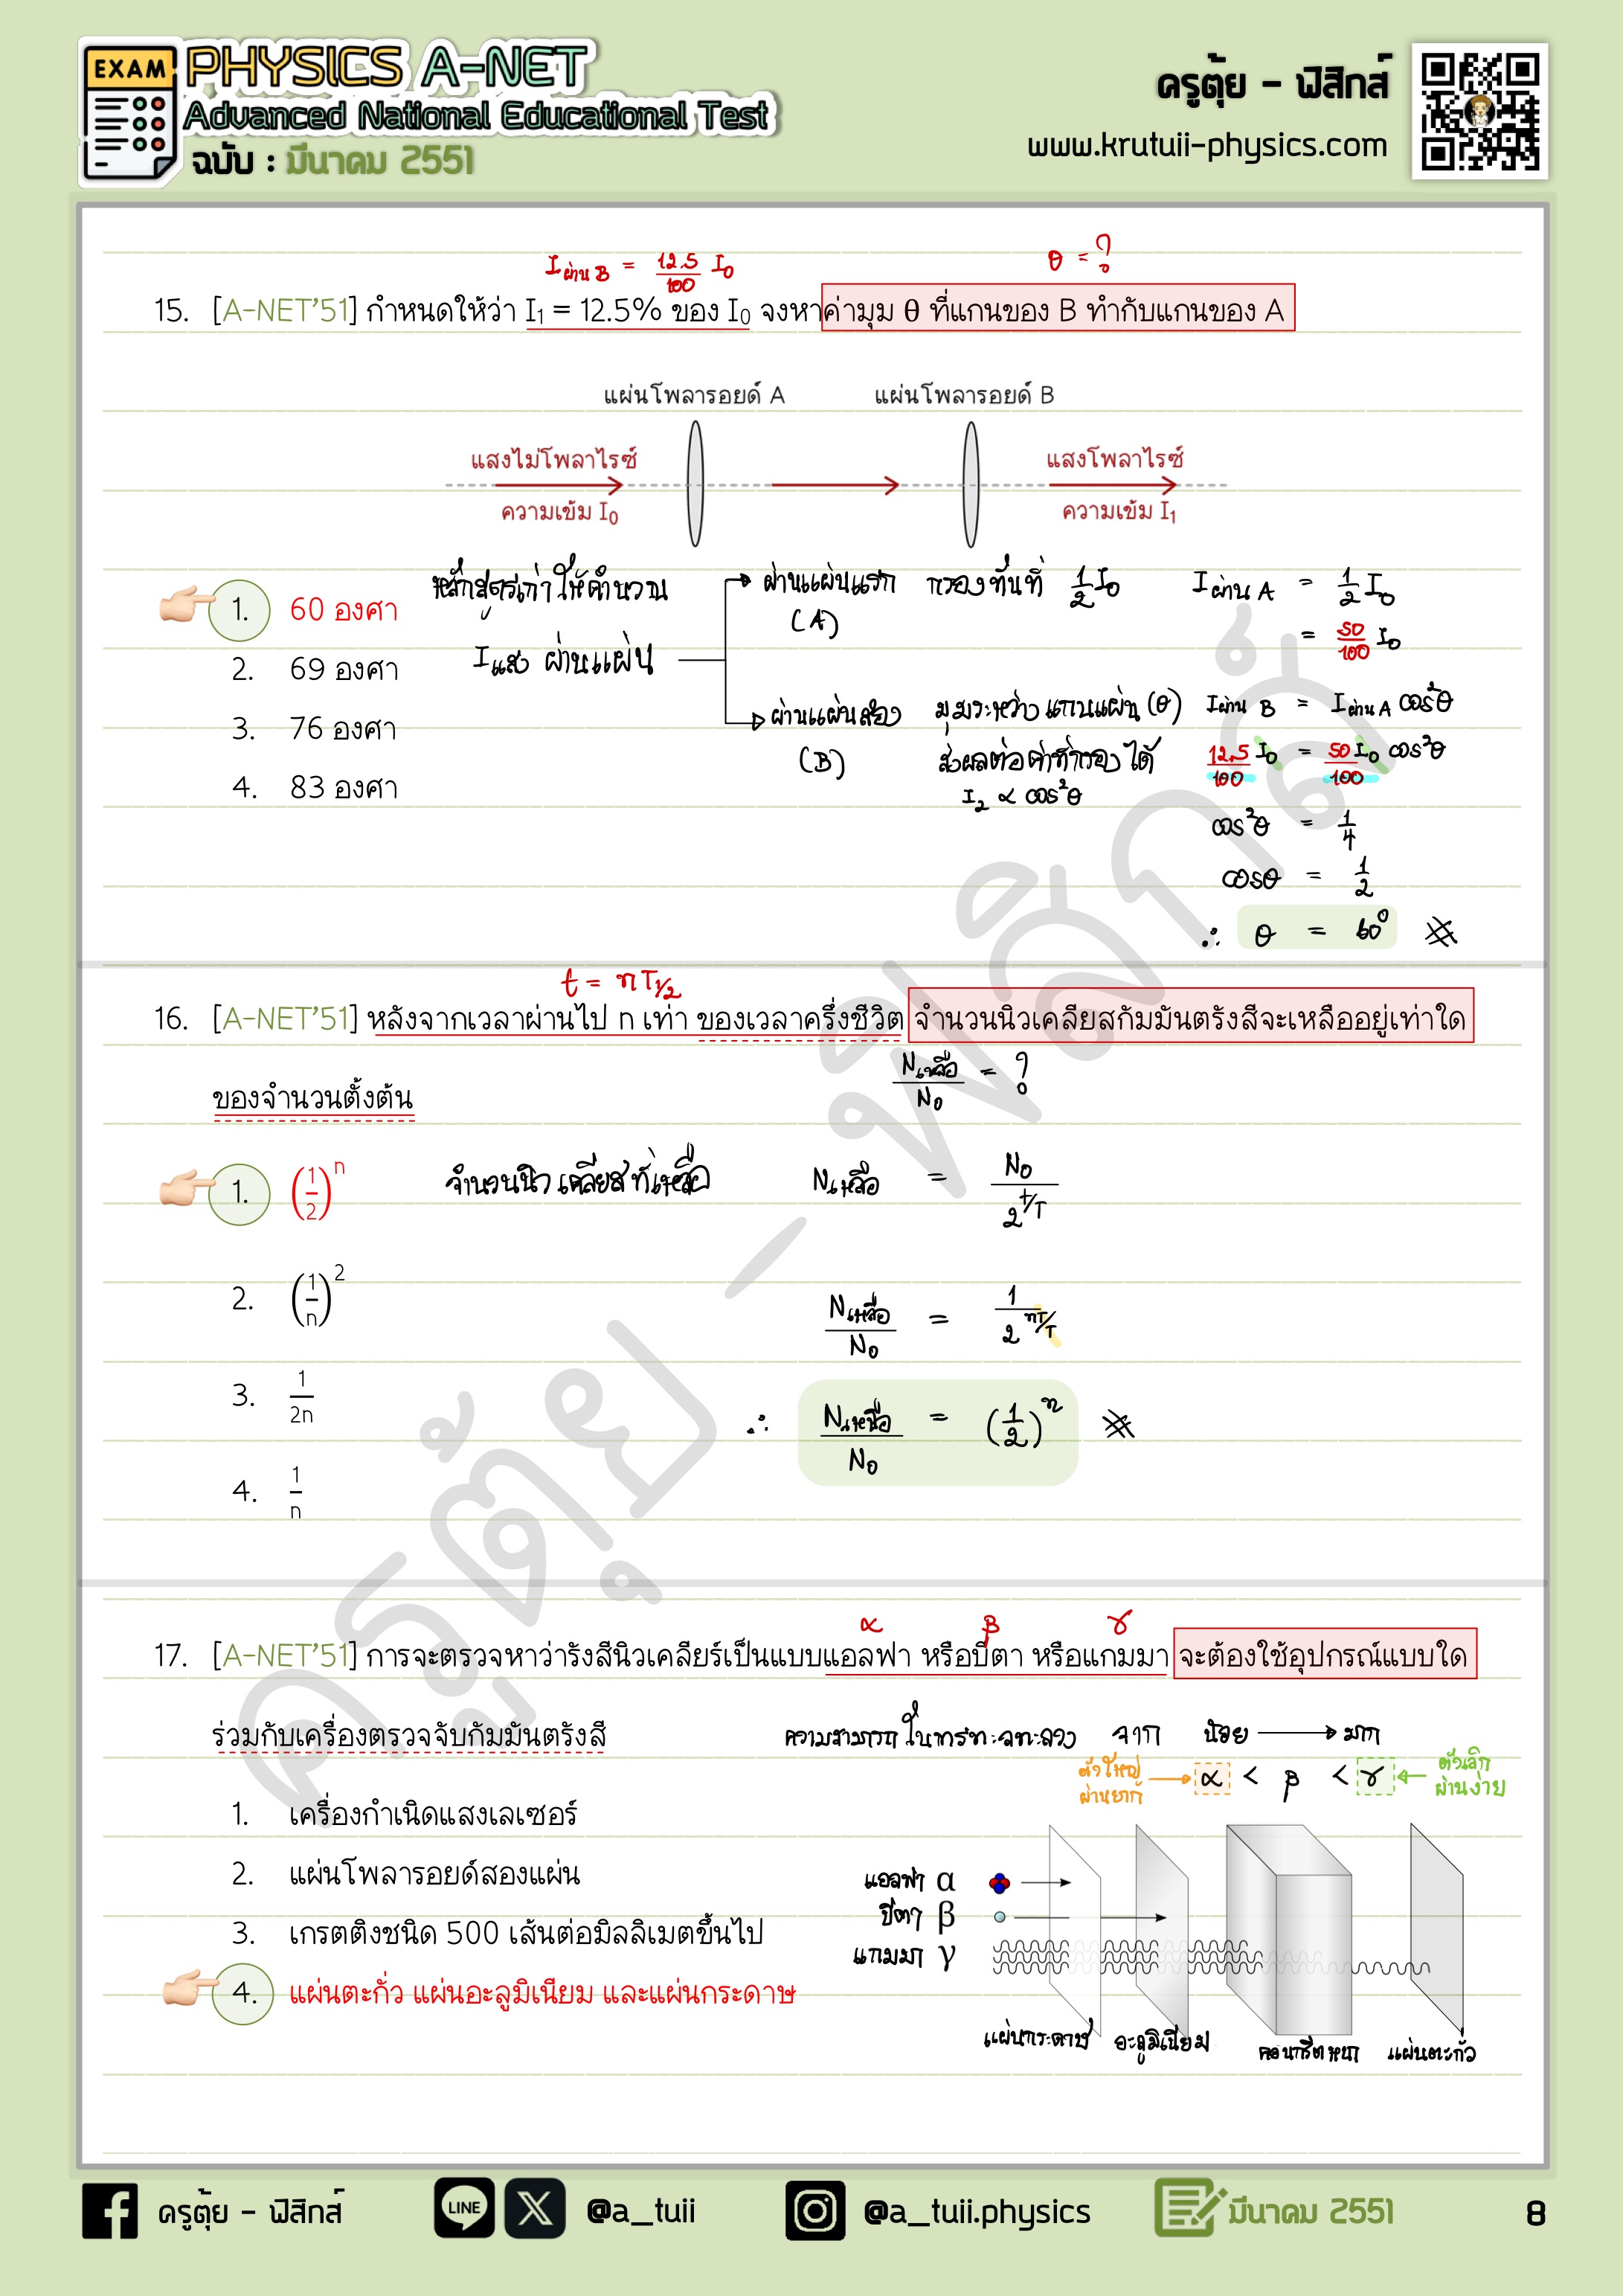 EXAM
PHYSICS A-NET
Advanced National Educational Test
ฉบับ : มีนาคม 2551
ครูตุ้ย - ฟิสิกส์
www.krutuii-physics.com
I ผ่าน B = 12.5/100 I₀
θ = ?
15. [A-NET'51] กำหนดให้ว่า I₁ = 12.5% ของ I₀ จงหาค่ามุม θ ที่แกนของ B ทำกับแกนของ A
แผ่นโพลารอยด์ A
แผ่นโพลารอยด์ B
แสงไม่โพลาไรซ์
แสงโพลาไรซ์
ความเข้ม I₀
ความเข้ม I₁
1. 60 องศา
2. 69 องศา
3. 76 องศา
4. 83 องศา
หลักสูตรเก่าให้คำนวณ
I แสง ผ่านแผ่น
ผ่านแผ่นแรก กรองทันที 1/2 I₀
(A)
I ผ่าน A = 1/2 I₀
= 50/100 I₀
ผ่านแผ่นสอง มุมระหว่างแกนแผ่น (θ)
(B) ส่งผลต่อค่าที่กรองได้
I₂ ∝ cos²θ
I ผ่าน B = I ผ่าน A cos²θ
12.5/100 I₀ = 50/100 I₀ cos²θ
cos²θ = 1/4
cosθ = 1/2
∴ θ = 60°
t = nT1/2
16. [A-NET'51] หลังจากเวลาผ่านไป n เท่า ของเวลาครึ่งชีวิต จำนวนนิวเคลียสกัมมันตรังสีจะเหลืออยู่เท่าใด
ของจำนวนตั้งต้น
Nเหลือ/N₀ = ?
1. (1/2)ⁿ
2. (1/n)²
3. 1/2n
4. 1/n
จำนวนนิวเคลียสที่เหลือ Nเหลือ = N₀/2^(t/T)
Nเหลือ/N₀ = 1/2^(nT/T)
∴ Nเหลือ/N₀ = (1/2)ⁿ
α β γ
17. [A-NET'51] การจะตรวจหาว่ารังสีนิวเคลียร์เป็นแบบแอลฟา หรือบีตา หรือแกมมา จะต้องใช้อุปกรณ์แบบใด
ร่วมกับเครื่องตรวจจับกัมมันตรังสี
1. เครื่องกำเนิดแสงเลเซอร์
2. แผ่นโพลารอยด์สองแผ่น
3. เกรตติงชนิด 500 เส้นต่อมิลลิเมตขึ้นไป
4. แผ่นตะกั่ว แผ่นอะลูมิเนียม และแผ่นกระดาษ
ความสามารถในการทะลุทะลวง จาก น้อย → มาก
ตัวใหญ่ ผ่านยาก → α < β < γ ← ตัวเล็ก ผ่านง่าย
แอลฟา α
บีตา β
แกมมา γ
แผ่นกระดาษ
อะลูมิเนียม
คอนกรีตหนา
แผ่นตะกั่ว
ครูตุ้ย - ฟิสิกส์
ครูตุ้ย - ฟิสิกส์
LINE
@a_tuii
@a_tuii.physics
มีนาคม 2551
8